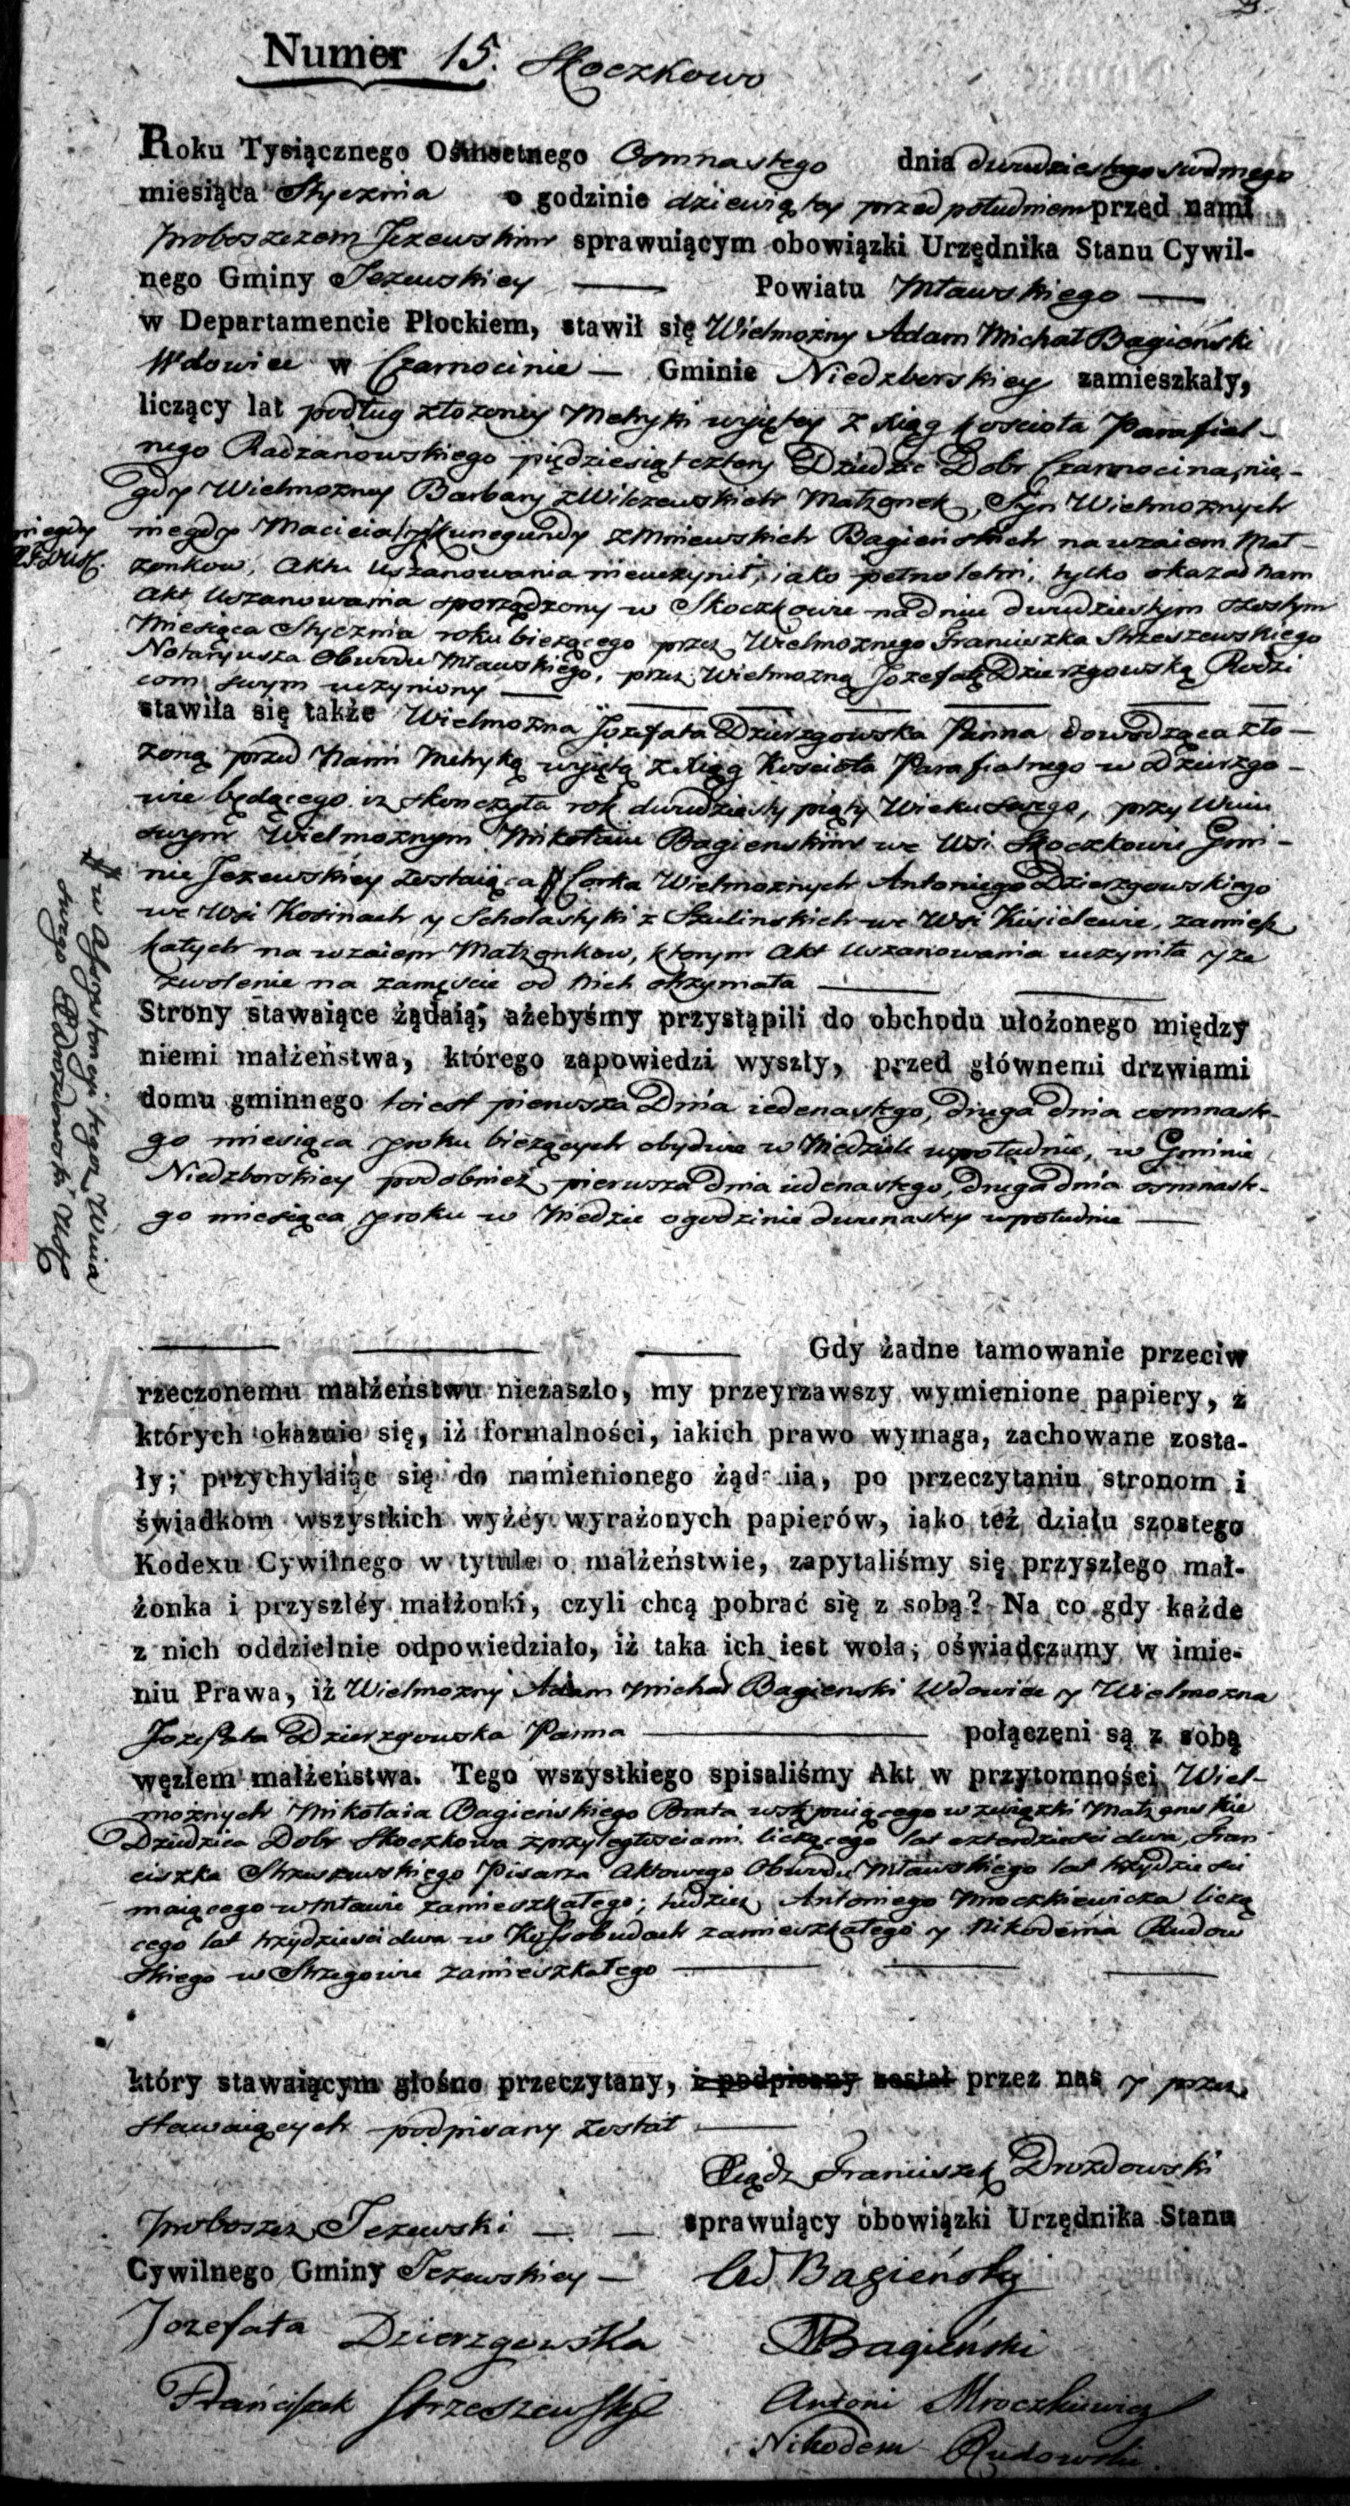 Numer 15. Skoczkowo
Roku Tysiącznego Ośmsetnego Osmnastego dnia dwudziestego siudmego
miesiąca Stycznia o godzinie dziewiątey przed południem przed nami
Proboszczem Jeżewskim sprawuiącym obowiązki Urzędnika Stanu Cywil-
nego Gminy Jeżewskiey — Powiatu Mławskiego —
w Departamencie Płockiem, stawił się Wielmożny Adam Michał Bagieński
Wdowiec w Czarnocinie — Gminie Niedzborskiey zamieszkały,
liczący lat podług złożoney Metryki wyiętey z Xiąg Kościoła Parafial-
nego Radzanowskiego pięćdziesiąt cztery Dziedzic Dobr Czarnocina, nie-
gdy Wielmożney Barbary z Wilczewskich Małżonek, Syn Wielmożnych
niegdy Macieia / y / Kunegundy z Mniewskich Bagieńskich na wzaiem Mał-
żonkow, Aktu Uszanowania nieuczynił, iako pełnoletni, tylko okazał nam
Akt Uszanowania sporządzony w Skoczkowie na dniu dwudziestym szostym
Miesiąca Stycznia roku bieżącego przez Wielmożnego Franciszka Strzeszewskiego
Notaryusza Obwodu Mławskiego, przez Wielmożną Jozefatę Dzierzgowską Rodzi
com swym uczyniony —
stawiła się także Wielmożna Jozefata Dzierzgowska Panna dowodząca zło-
żoną przed Nami Metryką wyiętą z Xiąg Kościoła Parafialnego w Dzierzgo-
wie będącego iż skończyła rok dwudziesty piąty Wieku swego, przy Wuiu
swym Wielmożnym Mikołaiu Bagieńskim we Wsi Skoczkowie Gmi-
nie Jeżewskiey zostaiąca # Corka Wielmożnych Antoniego Dzierzgowskiego
we Wsi Kosinach y Scholastyki z Szulinskich we Wsi Kisielewie, zamiesz
kałych na wzaiem Małżonkow, ktorym Akt Uszanowania uczyniła y ze
zwolenie na zamęście od Nich otrzymała —
niegdy
X. F. Druzd.
# w Assystencyi tegoż Wuia
swego X Drozdowski
Strony stawaiące żądaią, ażebyśmy przystąpili do obchodu ułożonego między
niemi małżeństwa, którego zapowiedzi wyszły, przed głównemi drzwiami
domu gminnego toiest pierwsza Dnia iedenastego, druga dnia osmnaste-
go miesiąca y roku bieżących obydwie w Niedziele w południe, w Gminie
Niedzborskiey podobnież pierwsza dnia iedenastego, druga dnia osmnaste-
go miesiąca y roku w Niedzie o godzinie dwunastey w południe —
Gdy żadne tamowanie przeciw
rzeczonemu małżeństwu niezaszło, my przeyrzawszy wymienione papiery, z
których okazuie się, iż formalności, iakich prawo wymaga, zachowane zosta-
ły; przychylaiąc się do namienionego żądania, po przeczytaniu stronom i
świadkom wszystkich wyżéy wyrażonych papierów, iako też działu szóstego
Kodexu Cywilnego w tytule o małżeństwie, zapytaliśmy się przyszłego mał-
żonka i przyszłéy małżonki, czyli chcą pobrać się z sobą? Na co gdy każde
z nich oddzielnie odpowiedziało, iż taka ich iest wola, oświadczamy w imie-
niu Prawa, iż Wielmożny Adam Michał Bagieński Wdowiec y Wielmożna
Jozefata Dzierzgowska Panna — połączeni są z sobą
węzłem małżeństwa. Tego wszystkiego spisaliśmy Akt w przytomności Wiel-
możnych Mikołaia Bagieńskiego Brata wstępuiącego w związki Małżenskie
Dziedzica Dobr Skoczkowa z przyległościami liczącego lat czterdzieści dwa, Fran
ciszka Strzeszewskiego Pisarza Aktowego Obwodu Mławskiego lat trzydzieści
maiącego w Mławie zamieszkałego; tudzież Antoniego Mroczkiewicza liczą
cego lat trzydzieści dwa w Kossobudach zamieszkałego y Nikodema Rudow
skiego w Strzegowie zamieszkałego —
który stawaiącym głośno przeczytany, i podpisany został przez nas y przez
Stawaiących podpisany został —
Xiądz Franciszek Drozdowski
Proboszcz Jeżewski — — sprawuiący obowiązki Urzędnika Stanu
Cywilnego Gminy Jeżewskiey — Ad Bagieńsky
Jozefata Dzierzgowska MBagieński
Franciszek Strzeszewski Antoni Mroczkiewicz
Nikodem Rudowski